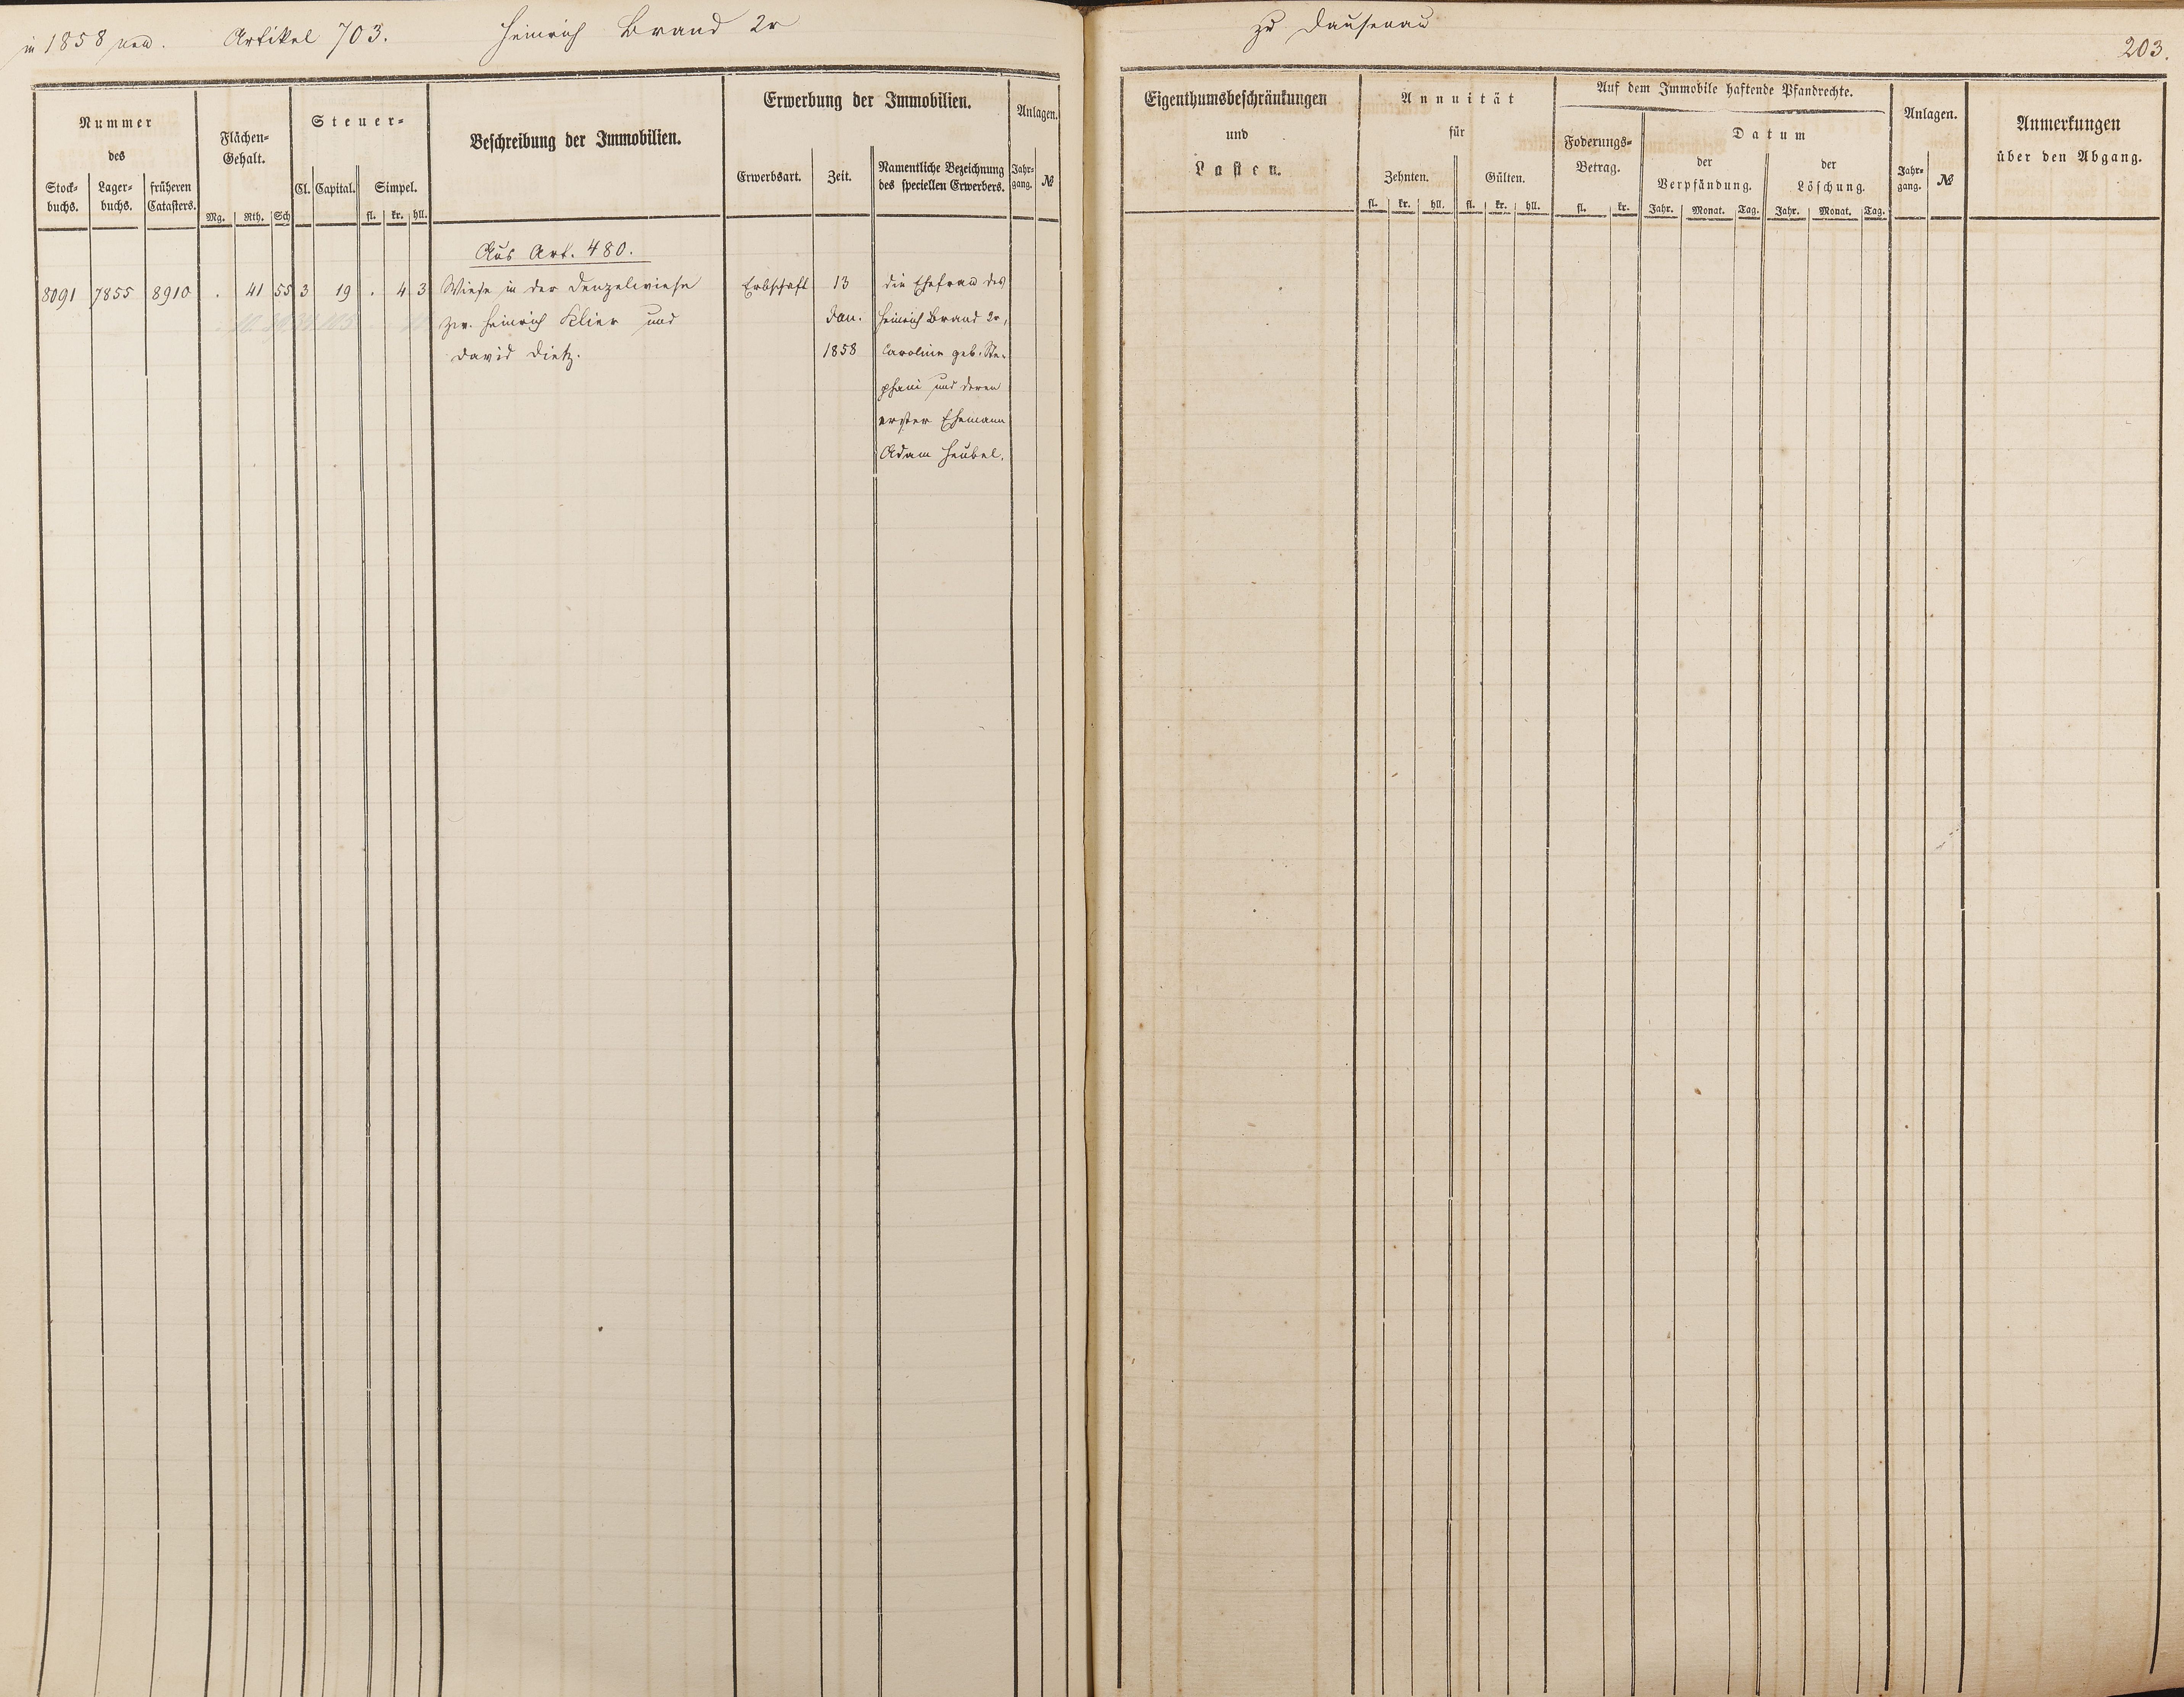 in 1858 neu. Artikel 703. Heinrich Brand 2r zu Dausenau
203.
Nummer
des
Stock-
buchs.
Lager-
buchs.
früheren
Catasters.
Flächen-
Gehalt.
Mg. Rth. Sch
Steuer-
Cl. Capital. Simpel.
fl. kr. hll.
Beschreibung der Immobilien.
Erwerbung der Immobilien.
Erwerbsart. Zeit.
Namentliche Bezeichnung
des speciellen Erwerbers.
Anlagen.
Jahr-
gang.
№
Eigenthumsbeschränkungen
und
Lasten.
Annuität
für
Zehnten. Gülten.
fl. kr. hll. fl. kr. hll.
Auf dem Immobile haftende Pfandrechte.
Foderungs-
Betrag.
fl. kr.
Datum
der
Verpfändung.
der
Löschung.
Jahr. Monat. Tag. Jahr. Monat. Tag.
Anlagen.
Jahr-
gang.
№
Anmerkungen
über den Abgang.
Aus Art. 480.
8091 7855 8910 . 41 55 3 19 . 4 3 Wiese in der Denzelwiese Erbschaft 13 die Ehefrau des
zw. Heinrich Klier und Jan. Heinrich Brand 2r,
David Dietz. 1858 Caroline geb. Ste-
phani und deren
erster Ehemann
Adam Heubel.